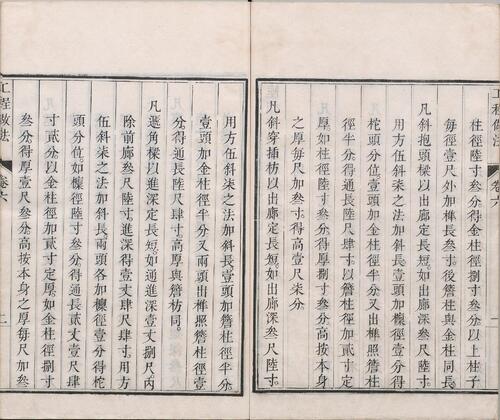 工程做法
六
柱徑陸寸叁分得金柱徑捌寸叁分以上柱子
每徑壹尺外加榫長叁寸後簷柱與金柱同長
凡斜抱頭樑以出廊定長短如出廊深叁尺陸寸
用方伍斜柒之法加斜長壹頭加檁徑壹分得
柁頭分位壹頭加金柱徑半分又出榫照簷柱
徑半分得通長陸尺肆寸以簷柱徑加貳寸定
厚如柱徑陸寸叁分得厚捌寸叁分高按本身
之厚每尺加叁寸得高壹尺柒分
凡斜穿插枋以出廊定長短如出廊深叁尺陸寸
用方伍斜柒之法加斜長壹頭加簷柱徑半分
壹頭加金柱徑半分又兩頭出榫照簷柱徑壹
分得通長陸尺肆寸高厚與簷枋同
凡遞角樑以進深定長短如進深壹丈捌尺內
除前廊叁尺陸寸進深得壹丈肆尺肆寸用方
伍斜柒之法加斜長兩頭各加檁徑壹分得柁
頭分位如檁徑陸寸叁分得通長貳丈壹尺肆
寸貳分以金柱徑加貳寸定厚如金柱徑捌寸
叁分得厚壹尺叁分高按本身之厚每尺加叁
工程做法
卷六
二